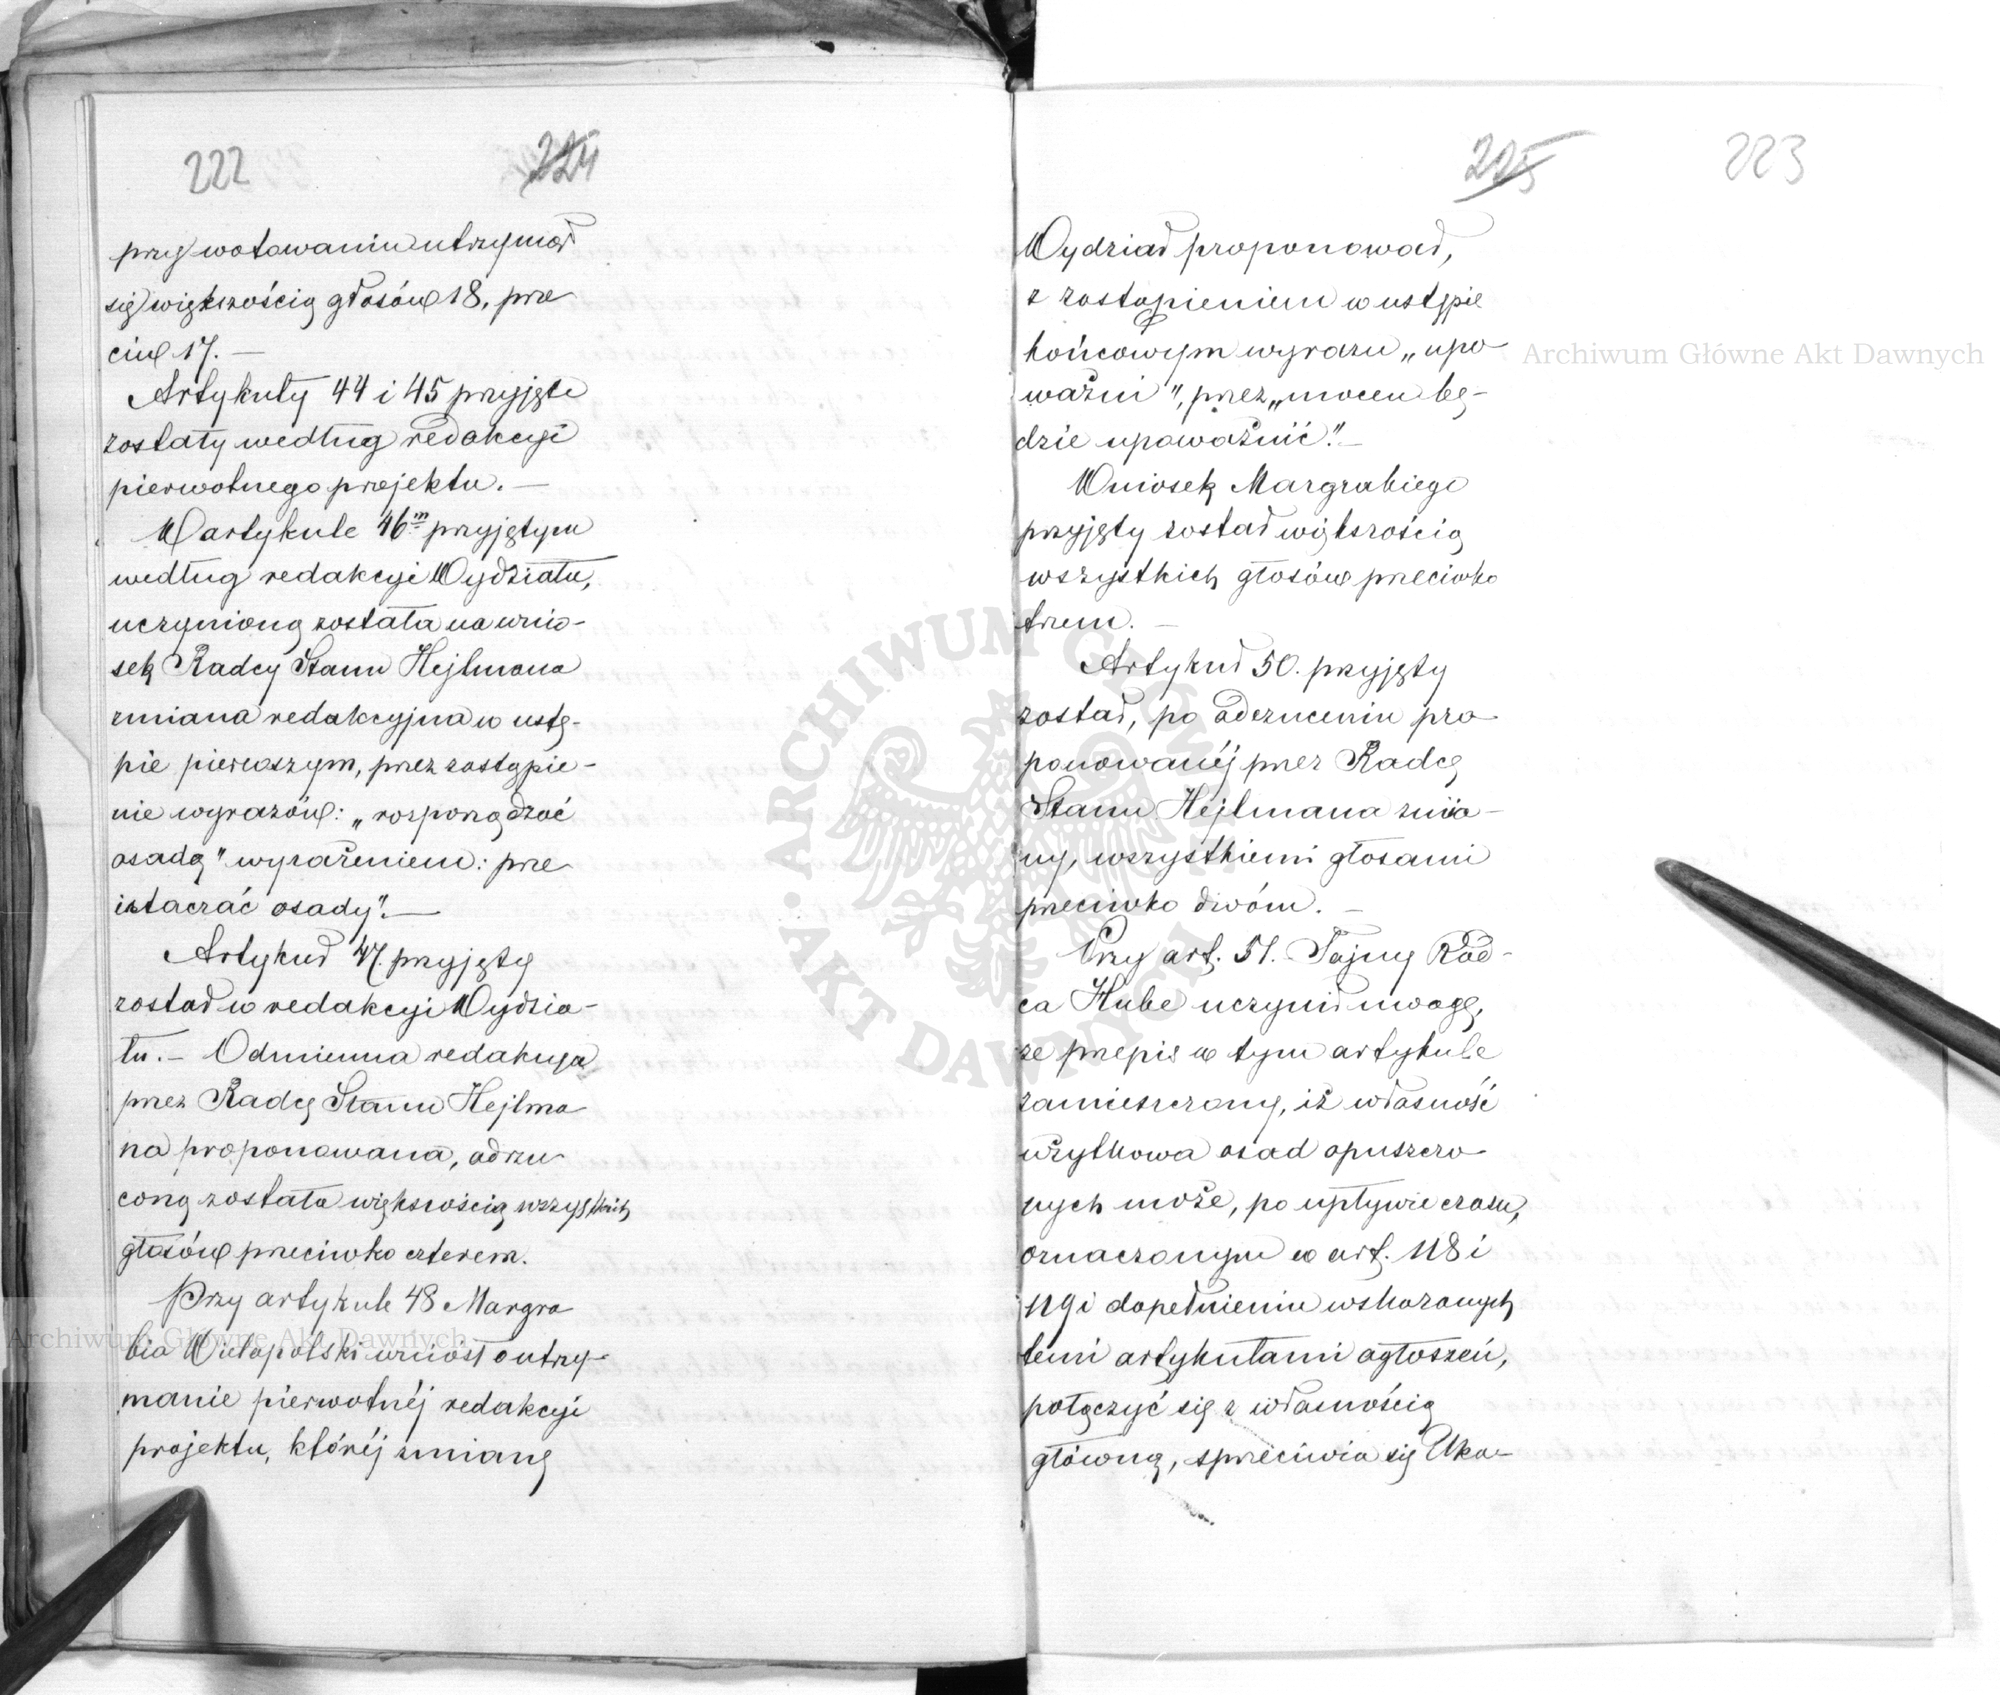 222
224
przy wotowaniu utrzymał
się większością głosów 18, prze
ciw 17. —
Artykuły 44 i 45 przyjęte
zostały według redakcyi
pierwotnego projektu. —
W artykule 46m przyjętym
według redakcyi Wydziału,
uczynioną została na wnio-
sek Radcy Stanu Hejlmana
zmiana redakcyjna w ustę-
pie pierwszym, przez zastąpie-
nie wyrazów: „rozporządzać
osadą" wyrażeniem: prze
istaczać osady". —
Artykuł 47. przyjęty
został w redakcyi Wydzia-
łu. — Odmienna redakcya
przez Radcę Stanu Hejlma
na proponowana, odrzu
coną została większością wszystkich
głosów przeciwko czterem.
Przy artykule 48 Margra
bia Wielopolski wniósł o utrzy-
manie pierwotnéj redakcyi
projektu, któréj zmianę
225
223
Wydział proponował,
z zastąpieniem w ustępie
końcowym wyrazu „upo
ważni", przez „mocen bę-
dzie upoważnić". —
Wniosek Margrabiego
przyjęty został większością
wszystkich głosów przeciwko
trzem. —
Artykuł 50. przyjęty
został, po odrzuceniu pro
ponowanéj przez Radcę
Stanu Hejlmana zmia-
ny, wszystkiemi głosami
przeciwko dwóm. —
Przy art. 51. Tajny Rad-
ca Hube uczynił uwagę,
że przepis w tym artykule
zamieszczony, iż własność
użytkowa osad opuszczo
nych może, po upływie czasu,
oznaczonym w art. 118 i
119 i dopełnieniu wskazanych
temi artykułami ogłoszeń,
połączyć się z własnością
główną, sprzeciwia się Uka-
Archiwum Główne Akt Dawnych
Archiwum Główne Akt Dawnych
ARCHIWUM GŁÓWNE AKT DAWNYCH